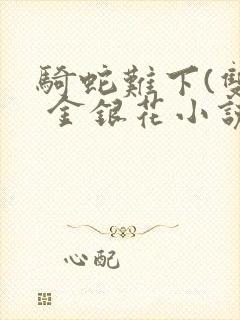 騎蛇難下(雙
金銀花小說
心配